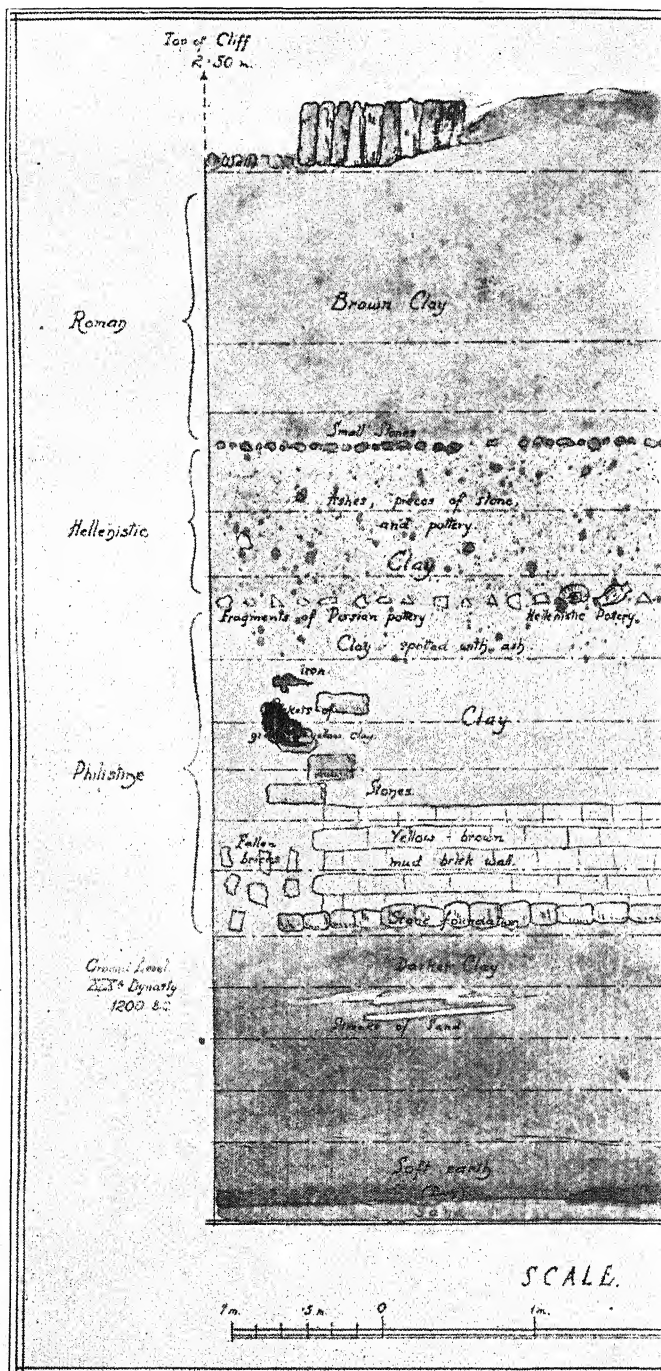 Top of Cliff
2·50 m.
Roman
Brown Clay
Small Stones
Hellenistic
Ashes, pieces of stone,
and pottery.
Clay
Fragments of Persian pottery
Hellenistic Pottery.
Clay spotted with ash
iron
of
Clay
yellow clay.
Philistine
Stones
Fallen
bricks
Yellow-brown
mud brick wall.
Stone foundation
Darker Clay
Ground Level
Dynasty
1200 B.C.
Streaks of Sand
Soft earth
Sand
SCALE.
1m.
·5m.
0
1m.